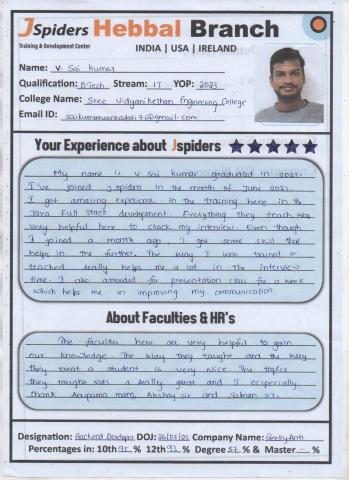 JSpiders Hebbal Branch
Training & Development Center
INDIA | USA | IRELAND
Name: V. Sai kumar
Qualification: BTech Stream: IT YOP: 2023
College Name: Sree Vidyanikethan Engineering College
Email ID:
Your Experience about Jspiders
My name is V Sai kumar graduated in 2023.
I've joined Jspiders in the month of June 2023.
I got amazing experience in the training here in the
Java Full Stack development. Everything they teach was
very helpful here to crack my interview. Even though
I joined a month ago, I got some skill that
helps in the further. The way I was trained or
teached really helps me a lot in the interview
time. I also attended for presentation class for a week
which helps me in improving my communication.
About Faculties & HR's
The faculties here are very helpful to gain
our knowledge. The way they taught and the way
they treat a student is very nice. The topics
they taught was a really great and I especially
thank Anupama mam, Akshay sir and Salman sir.
Designation: Backend Developer DOJ: 26/07/23 Company Name:
Percentages in: 10th % 12th % Degree % & Master - %